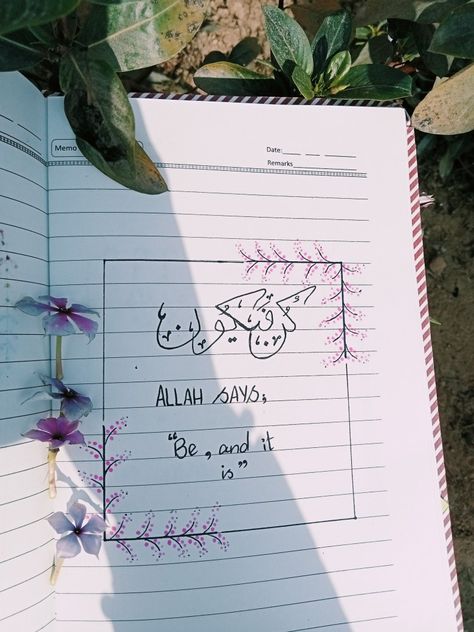 Memo
Date:
Remarks
كن فيكون
ALLAH SAYS,
"Be, and it
is"